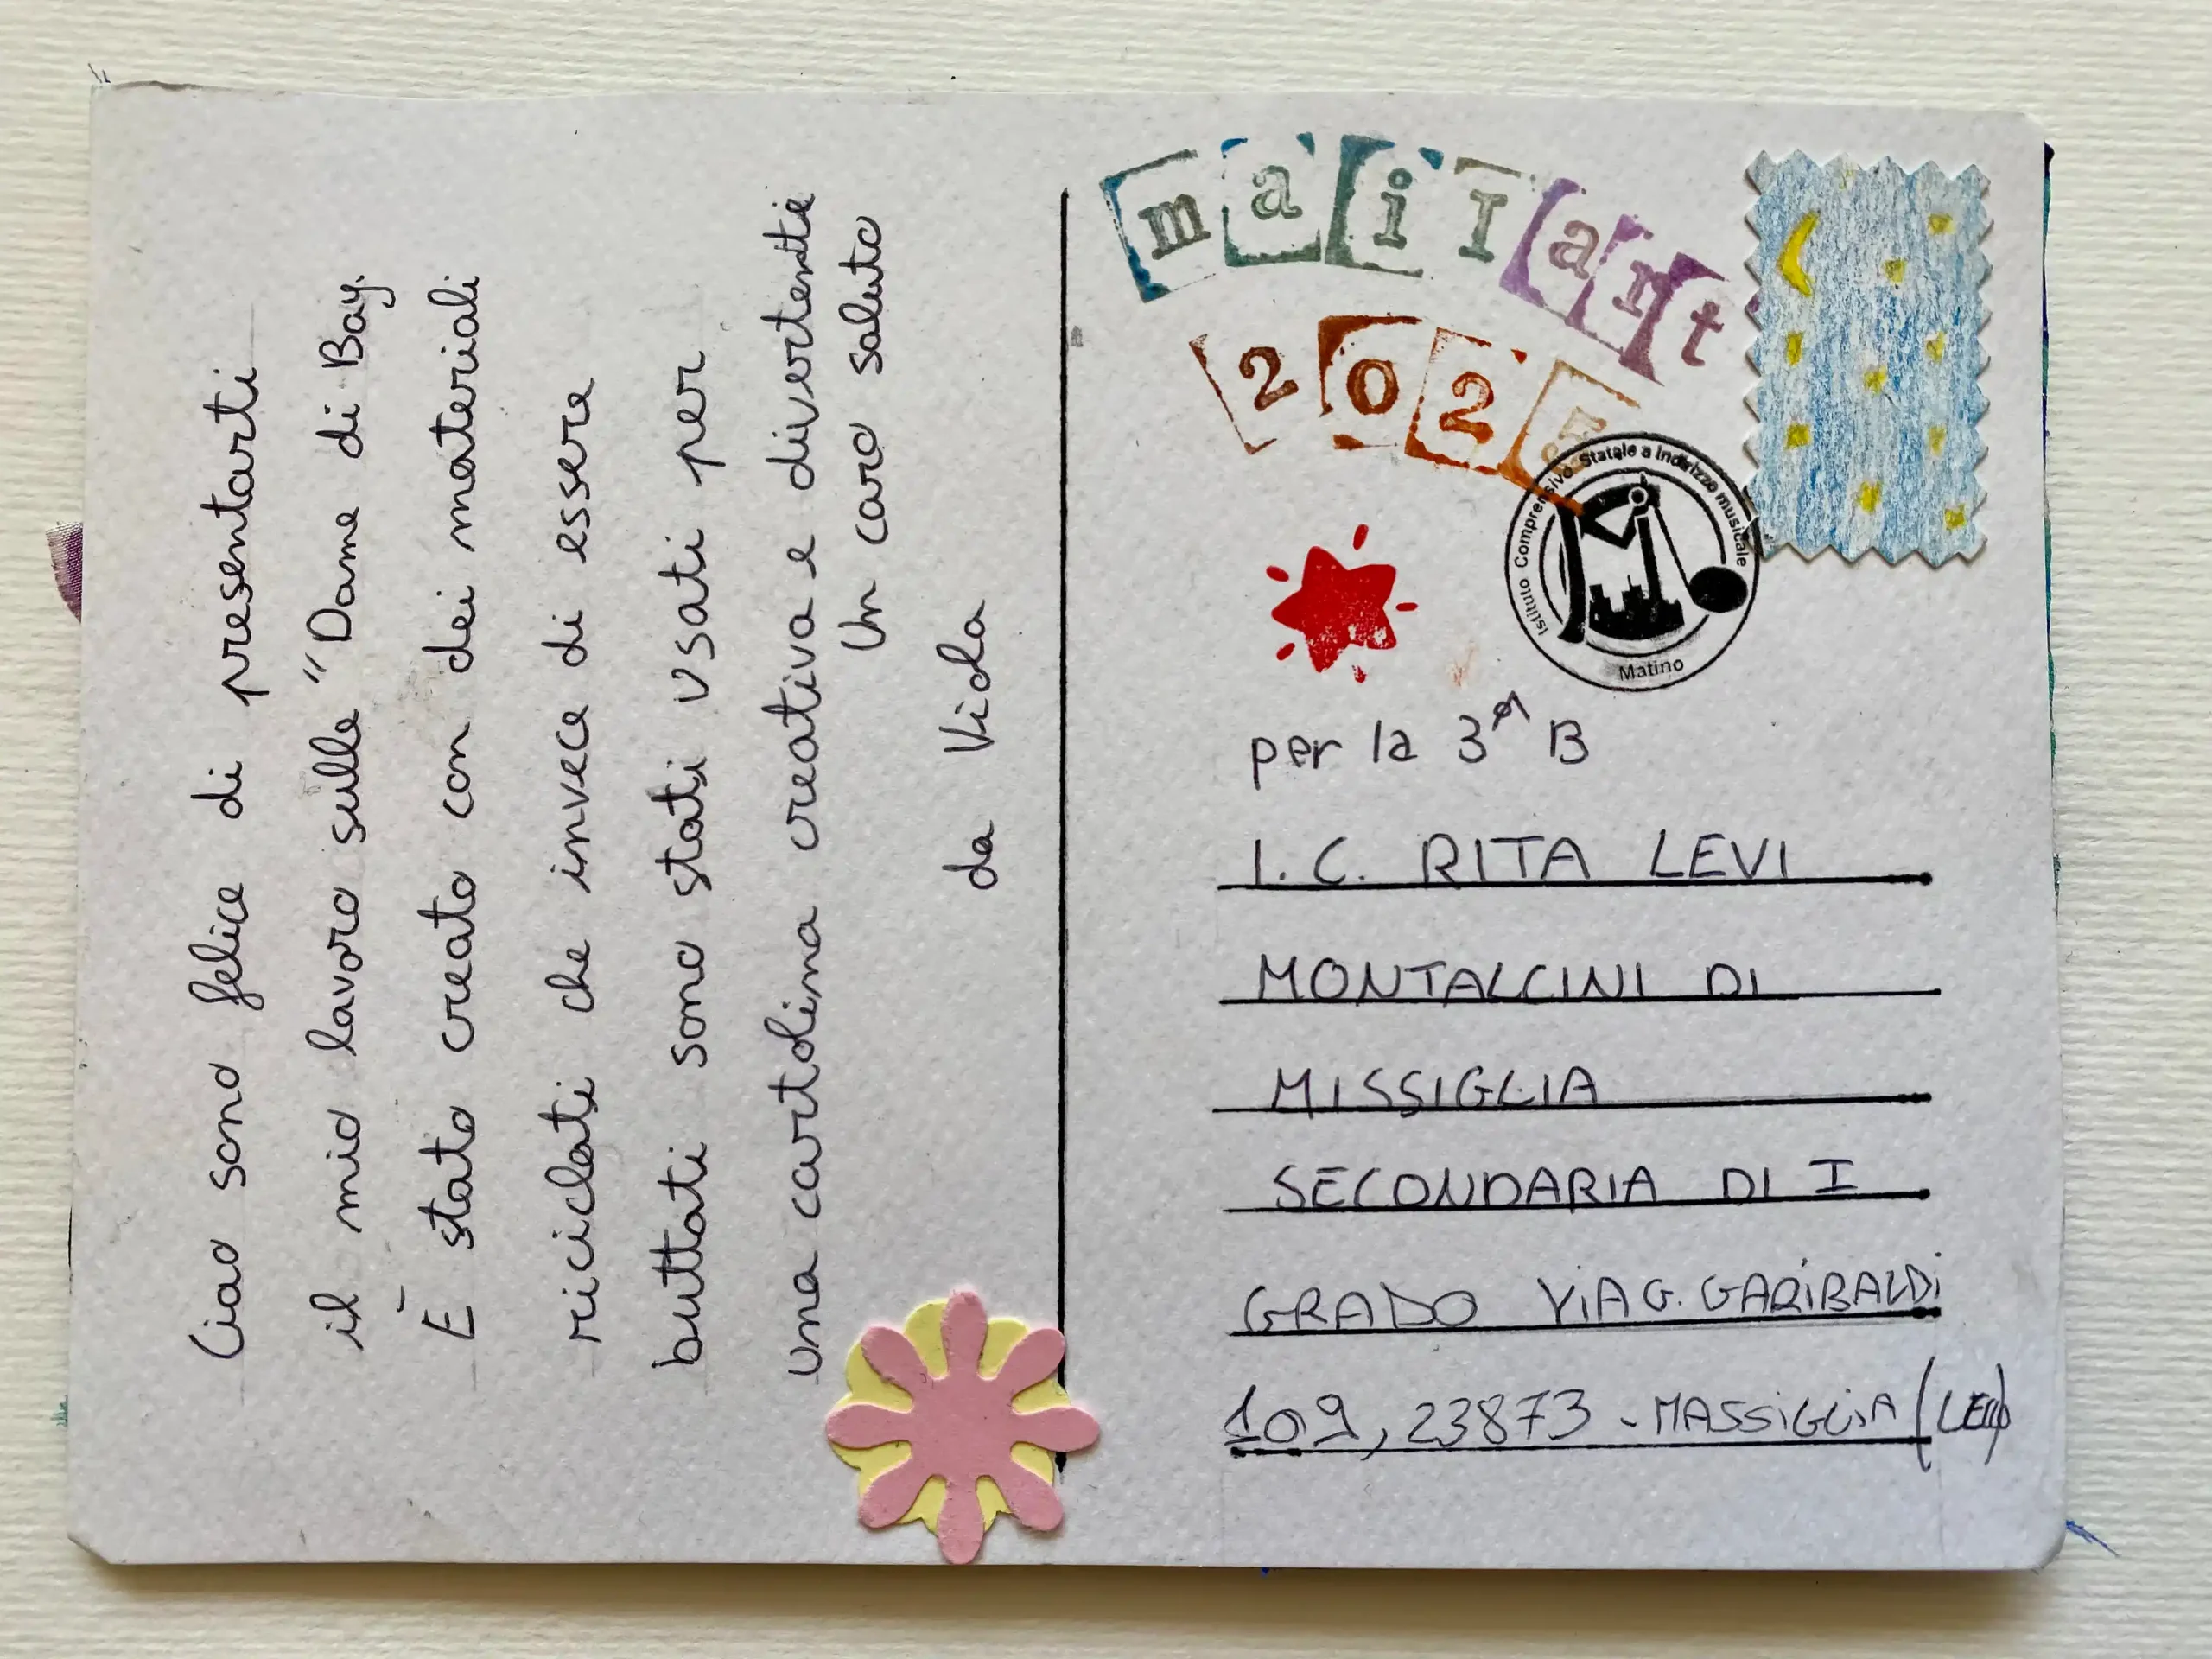 Ciao sono felice di presentarti
il mio lavoro sulle "Dame di Bay.
È stato creato con dei materiali
riciclati che invece di essere
buttati sono stati usati per
una cartolina creativa e divertente
Un caro saluto
da Viola
mail art
202
Istituto Comprensivo Statale a Indirizzo musicale
Matino
per la 3ª B
I. C. RITA LEVI
MONTALCINI DI
MISSIGLIA
SECONDARIA DI I
GRADO VIA G. GARIBALDI
109, 23873 - MASSIGLIA